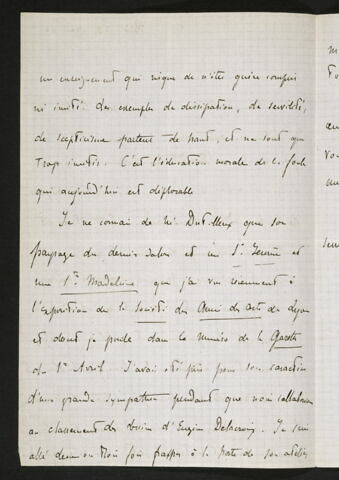 un enseignement qui risque de n'être guère compris
ni imité. Des exemples de dissipation, de servilité,
de scepticisme partent de haut, et ne sont que
trop imités. C'est l'éducation morale de la foule
qui aujourd'hui est déplorable
Je ne connais de Mr Dutilleux que son
paysage du dernier salon et un St
une Ste Madeleine que j'ai vus récemment à
l'Exposition de la société des Amis des arts de Lyon
et dont je parle dans le numéro de la Gazette
du 1er Avril. J'avais été pris pour son caractère
d'une grande sympathie pendant que nous collaborions
au classement des dessins d'Eugène Delacroix. Je suis
allé deux ou trois fois frapper à la porte de son atelier